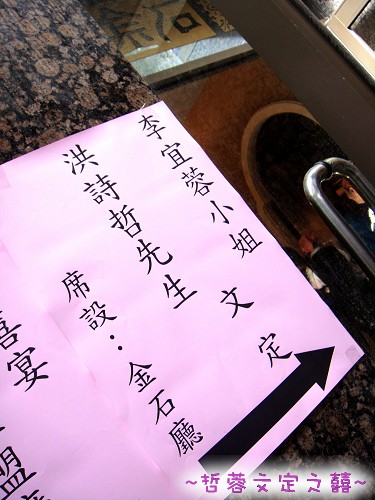 李宜蓉小姐 文定
洪詩哲先生
席設：金石廳
喜宴
盟
~哲蓉文定之囍~